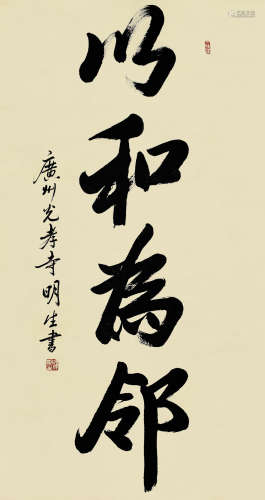 以和為邻
廣州光孝寺明生書